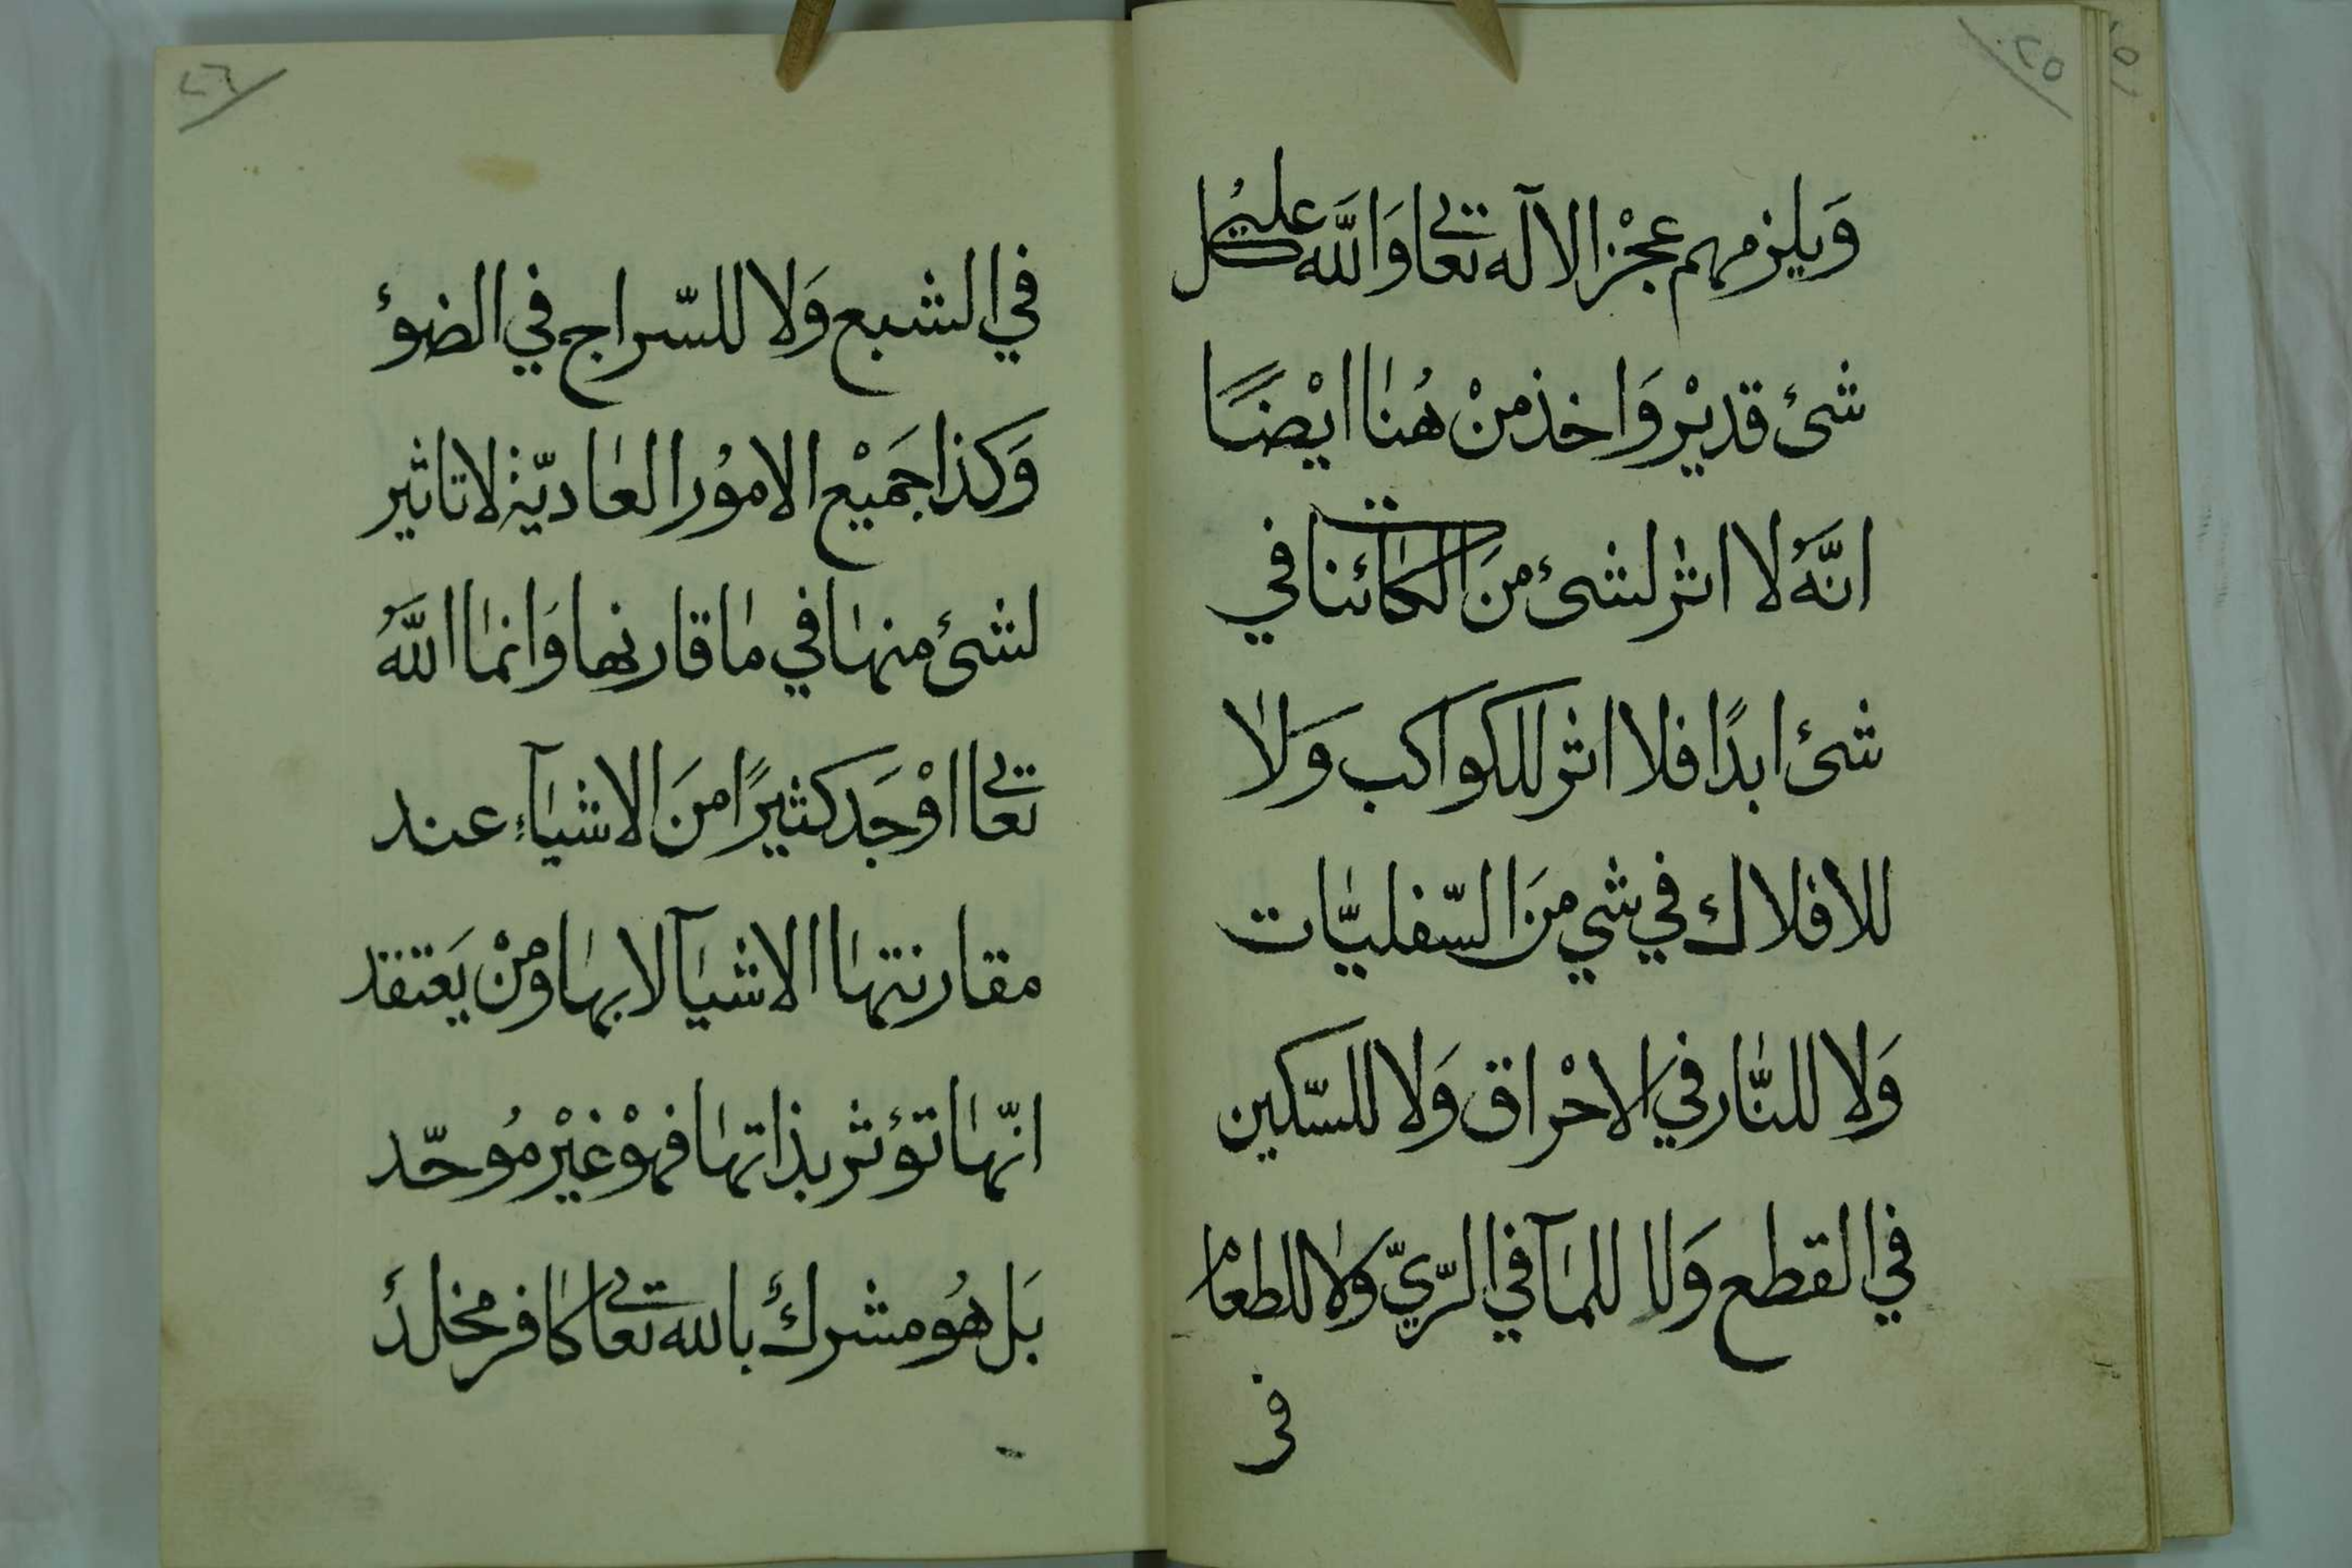 ٢٥
وَيلزمهم عجْز الآله تعالى وَاللَّه على كُل
شئ قديْر وَاخذ منْ هُنا ايْضًا
انَّهُ لا اثر لشئ منَ الكائنات في
شئ ابدًا فلا اثر للكواكب وَلا
للافلاك في شي منَ السّفليّات
وَلا للنّار في الاحْراق وَلا للسّكين
في القطع وَلا للمآ في الرّيّ وَلا للطعام
فى
٢٦
في الشبع وَلا للسّراج في الضوء
وَكذا جَميْع الامُور العاديّة لا تاثير
لشئ منها في ما قارنها وَانما اللَّهُ
تعالى اوْجَد كثيرًا منَ الاشيآءِ عند
مقارنتها الاشيآ لا بها ومنْ يَعتقد
انّها تؤثر بذاتها فهوْ غيْر مُوحّد
بَل هُو مشرك بالله تعالى كافر مخلد